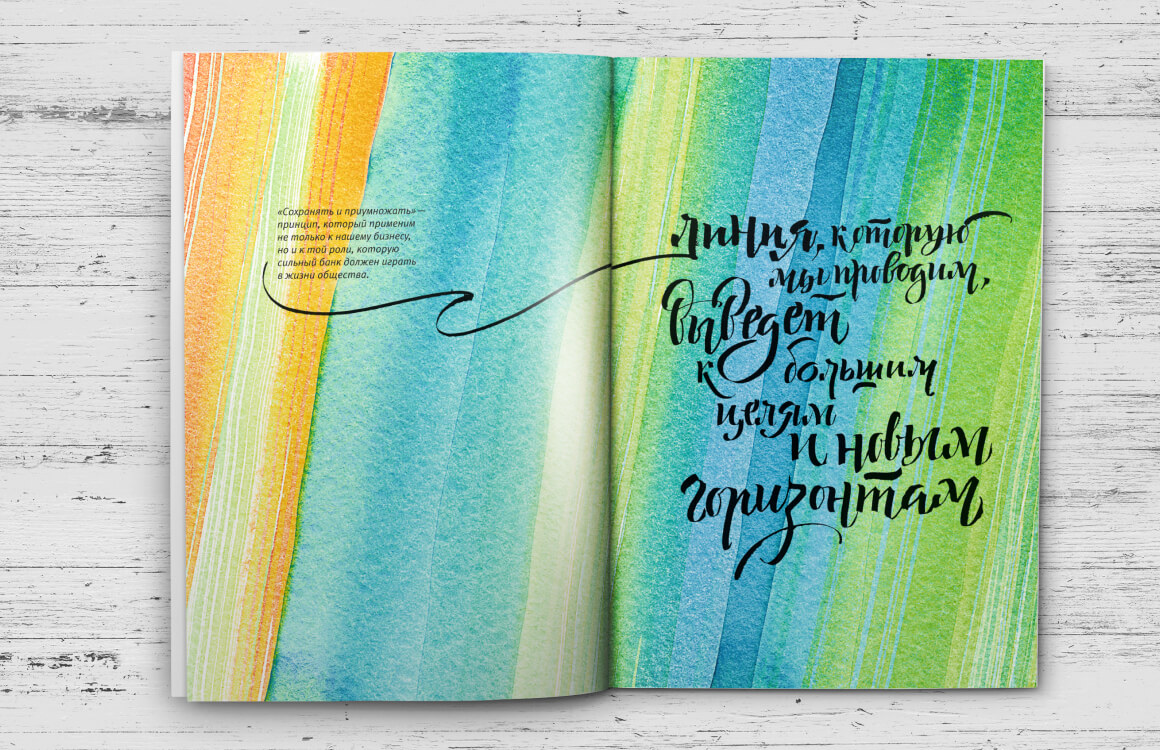 «Сохранять и приумножать» —
принцип, который применим
не только к нашему бизнесу,
но и к той роли, которую
сильный банк должен играть
в жизни общества.
линия, которую
мы проводим,
выведет
к большим
целям
и новым
горизонтам